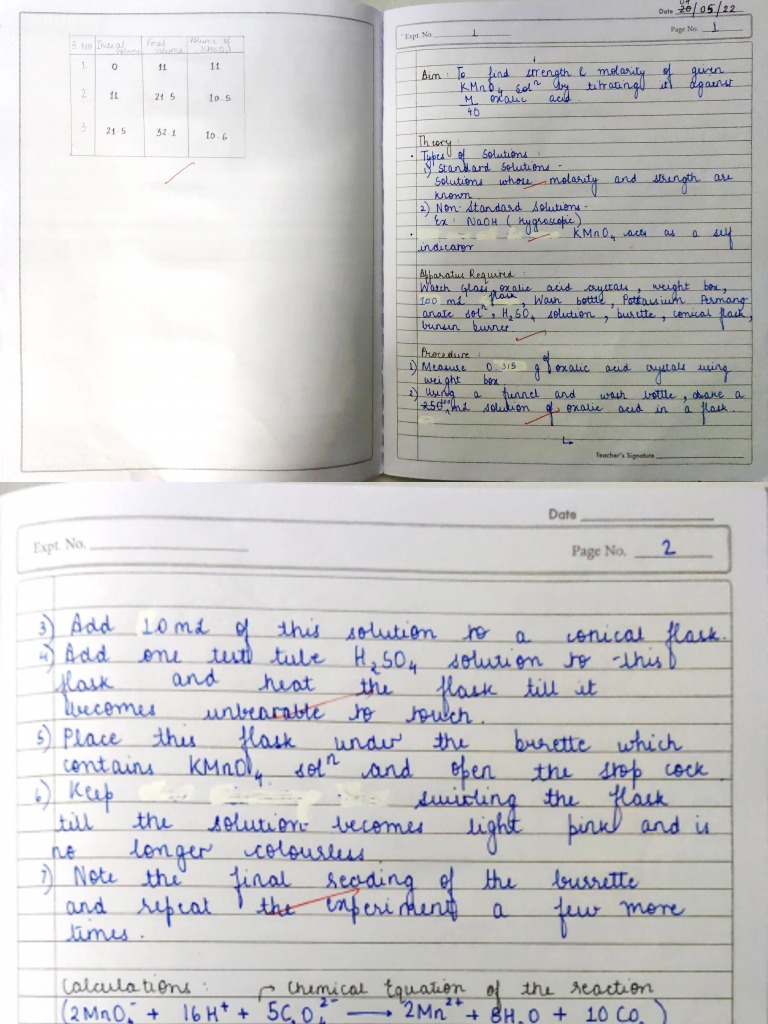 S NO Initial Volume Final Volume Volume of KMnO4
1 0 11 11
2 11 21.5 10.5
3 21.5 32.1 10.6
Date 20/05/22
Expt. No. 1
Page No. 1
Aim: To find strength & molarity of given
KMnO4 solⁿ by titrating it against
M/40 oxalic acid.
Theory:
• Types of Solutions:
1) Standard Solutions -
Solutions whose molarity and strength are
known
2) Non-Standard Solutions -
Ex: NaOH (Hygroscopic)
• KMnO4 acts as a self
indicator
Apparatus Required:
Watch Glass, oxalic acid crystals, weight box,
100 mL flask, Wash bottle, Pottassium Permang
anate solⁿ, H2SO4 solution, burette, conical flask,
bunsen burner
Procedure:
1) Measure 0.315 g of oxalic acid crystals using
weight box
2) Using a funnel and wash bottle, make a
250 100 mL solution of oxalic acid in a flask.
Teacher's Signature
Date
Expt. No.
Page No. 2
3) Add 10 mL of this solution to a conical flask.
4) Add one test tube H2SO4 solution to this
flask and heat the flask till it
becomes unbearable to touch.
5) Place this flask under the burette which
contains KMnO4 solⁿ and open the stop cock
6) Keep swirling the flask
till the solution becomes light pink and is
no longer colourless.
7) Note the final reading of the burrette
and repeat the experiment a few more
times.
Calculations: Chemical Equation of the reaction
(2MnO4⁻ + 16H⁺ + 5C2O4²⁻ ⟶ 2Mn²⁺ + 8H2O + 10CO2)